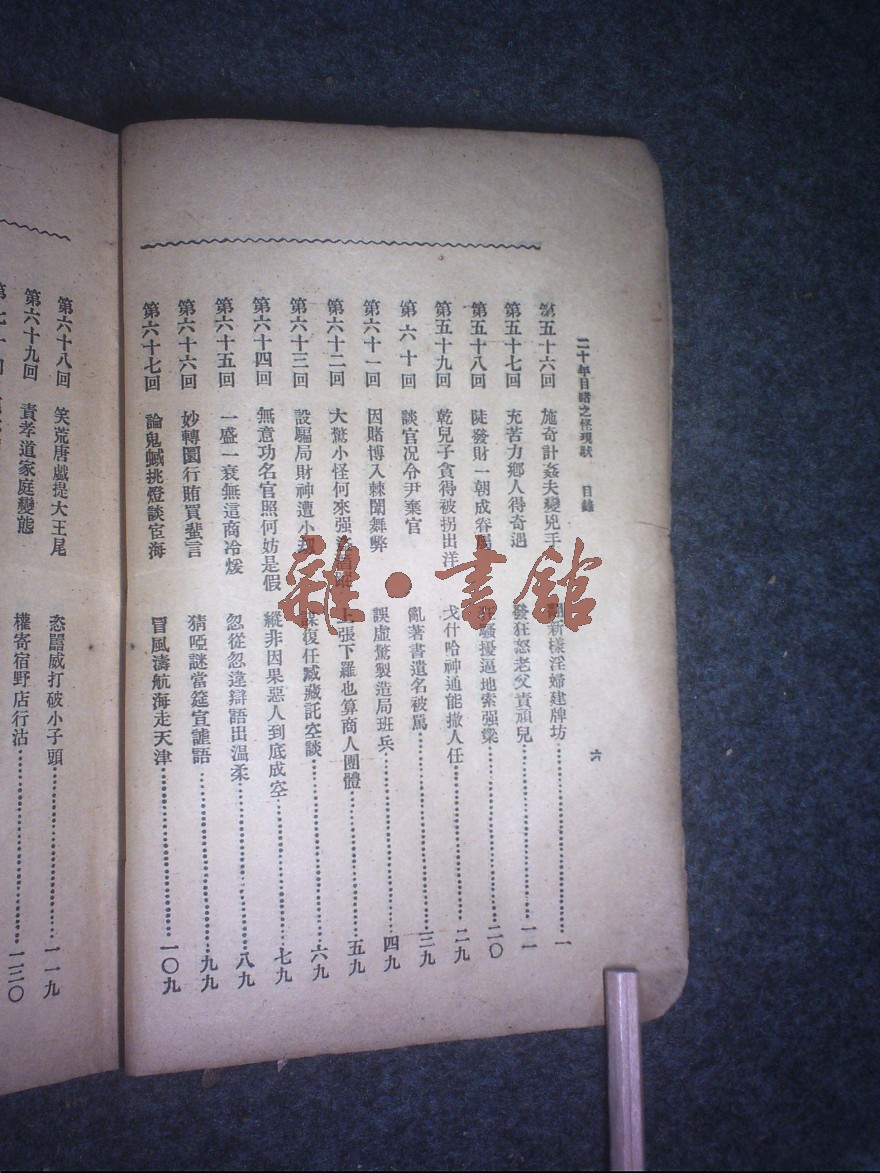 二十年目睹之怪現狀 目錄 六
第五十六回 施奇計姦夫變兇手 新樣淫婦建牌坊 一
第五十七回 充苦力鄉人得奇遇 發狂怒老父責頑兒 一一
第五十八回 陡發財一朝成眷屬 騷擾逼地索强梁 二〇
第五十九回 乾兒子貪得被拐出洋 戈什哈神通能撤人任 二九
第六十回 談官况令尹棄官 亂著書遺名被罵 三九
第六十一回 因賭博入棘闈舞弊 誤虛驚製造局班兵 四九
第六十二回 大驚小怪何來强 上張下羅也算商人團體 五九
第六十三回 設騙局財神遭小劫 謀復任臧藏託空談 六九
第六十四回 無意功名官照何妨是假 縱非因果惡人到底成空 七九
第六十五回 一盛一衰無這商冷煖 忽從忽違辯語出温柔 八九
第六十六回 妙轉圜行賄買蜚言 猜啞謎當筵宣謔語 九九
第六十七回 論鬼蜮挑燈談宦海 冒風濤航海走天津 一〇九
第六十八回 笑荒唐戲提大王尾 恣囂威打破小子頭 一一九
第六十九回 責孝道家庭變態 權寄宿野店行沽 一三〇
雜·書館